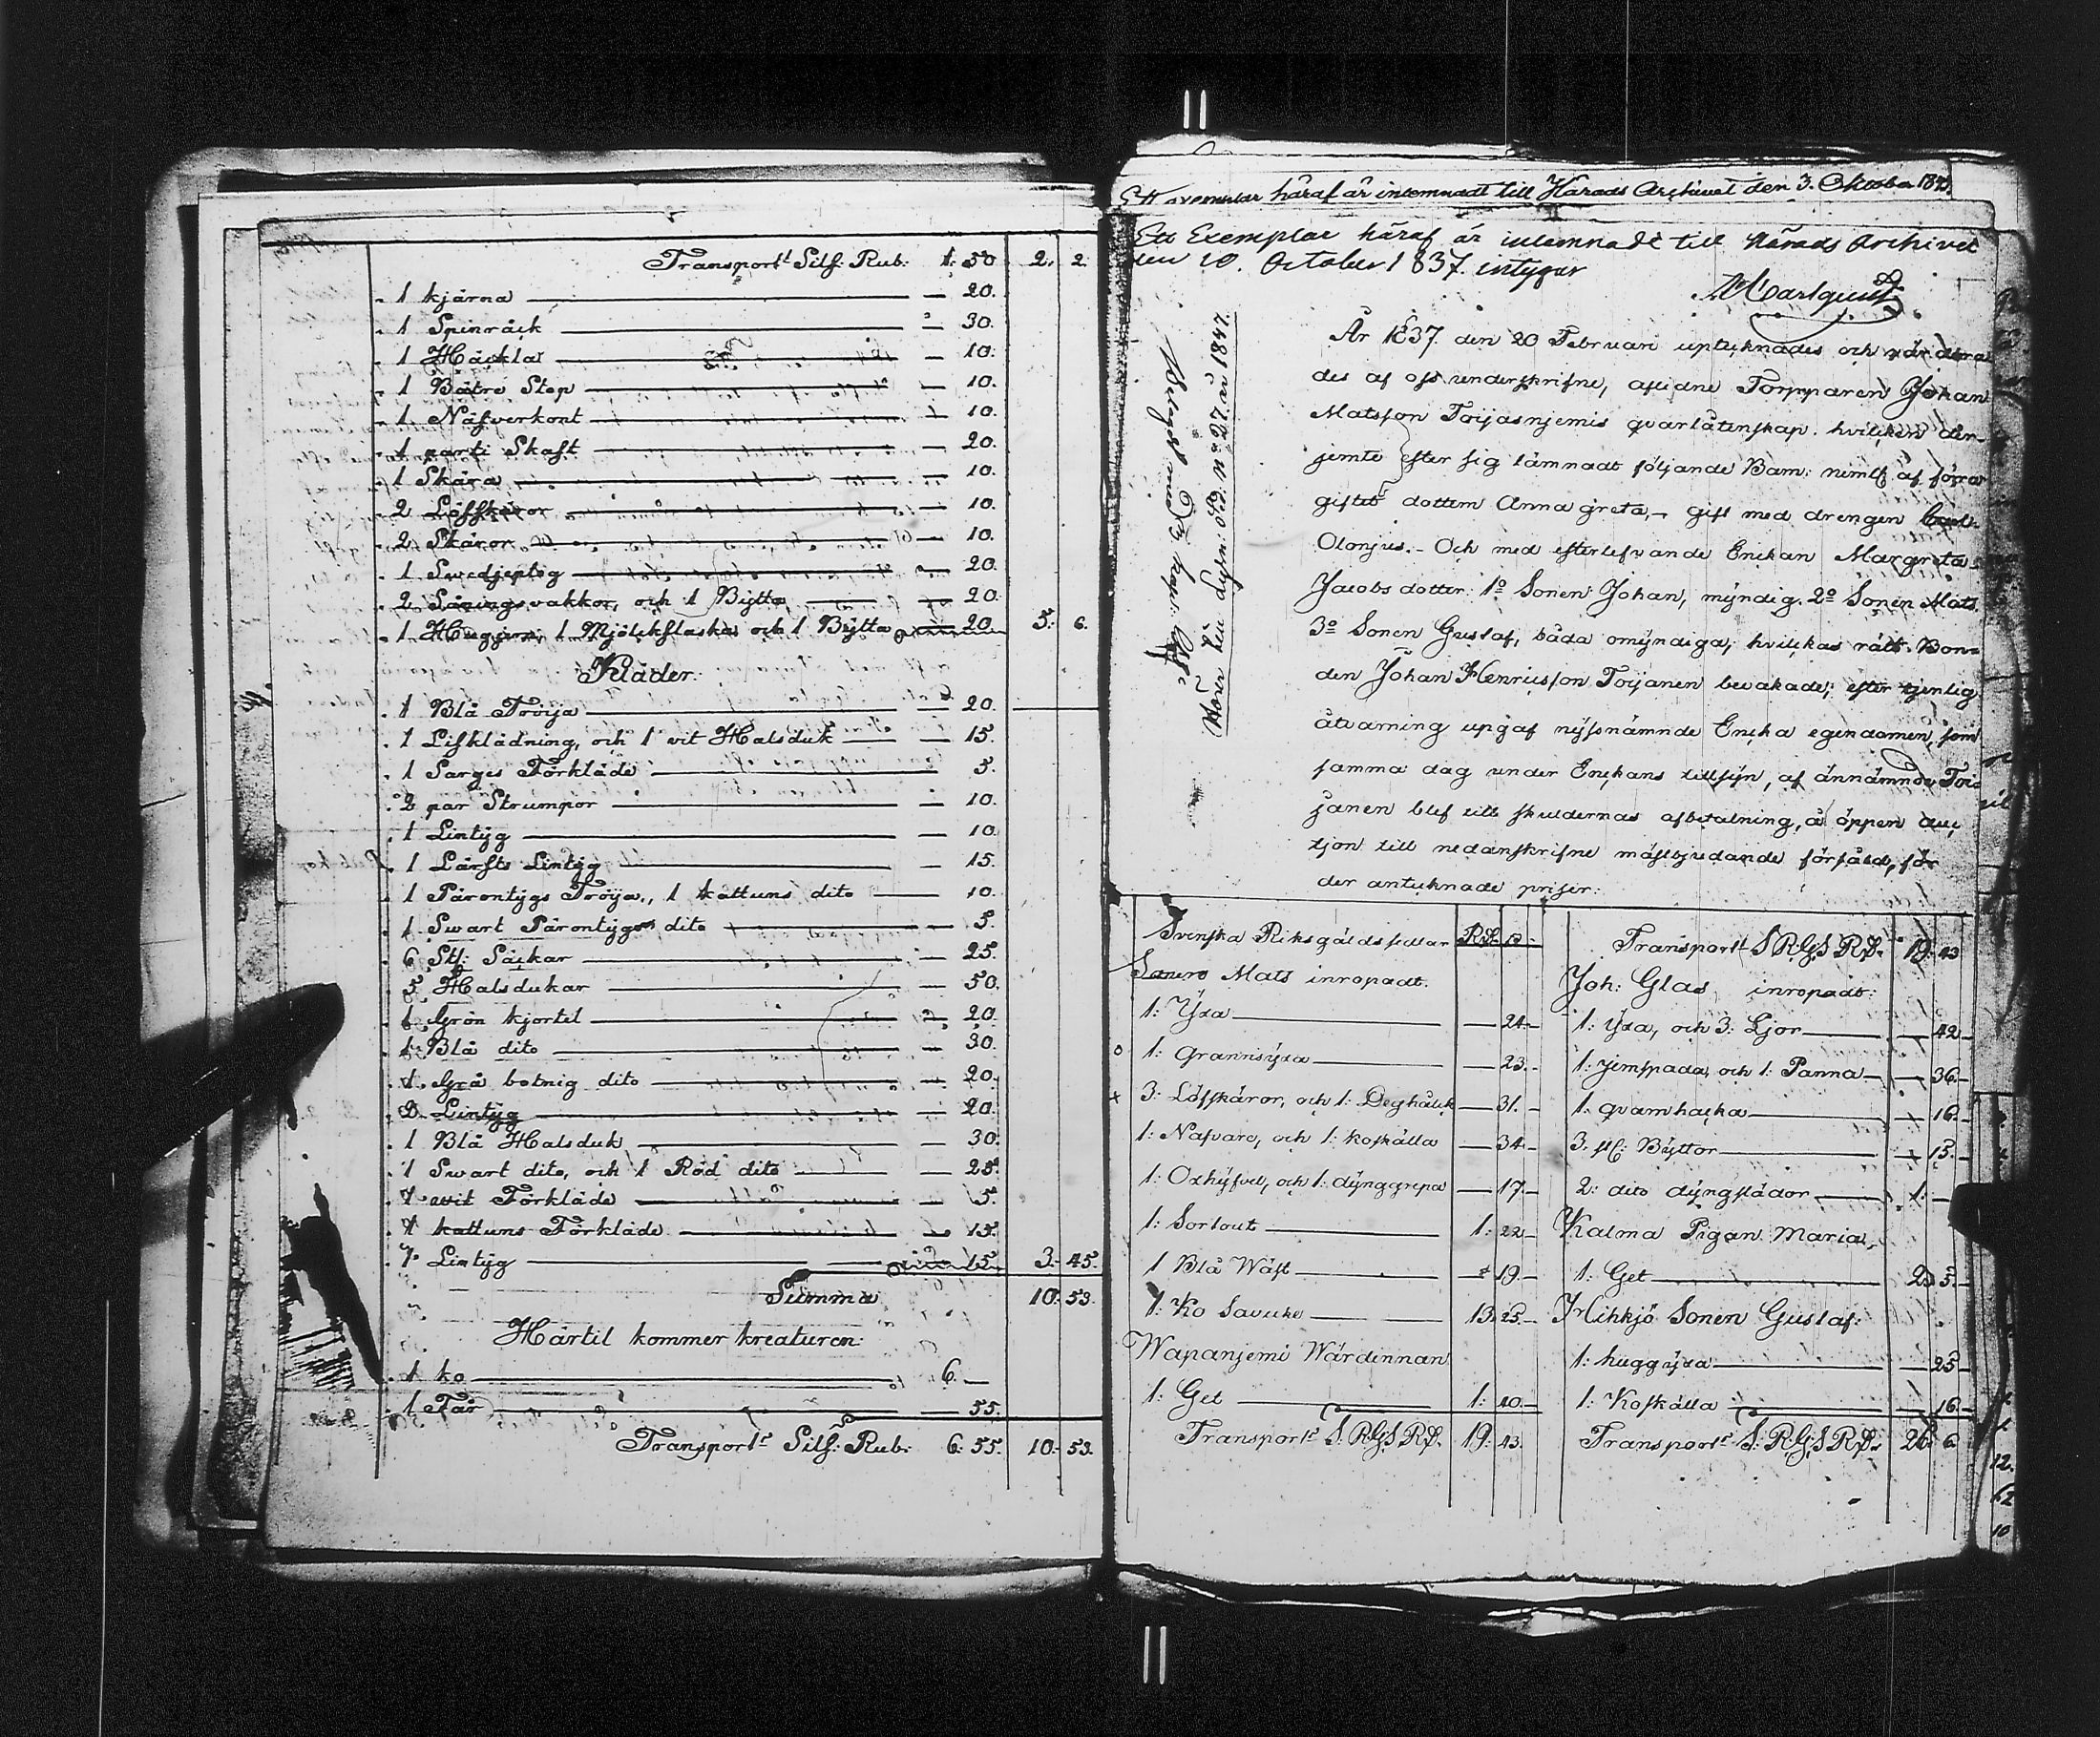 Transport Silf: Rub: 1: 50 2. 2.
1 kjärna — 20.
1 Spinråck — 30.
1 Häckla — 10.
1 Bätre Stop — 10.
1 Näfverkont — 10.
1 parti Skaft — 20.
1 Skära — 10.
2 Löfskäror — 10.
2 Skäror — 10.
1 Swedjeplog — 20.
2 Såningsvakkor, och 1 Bytta — 20.
1 Huggjern, 1 Mjölckflaska och 1 Bytta — 20. 5. 6.
Kläder:
1 Blå Tröija — 20.
1 Lifklädning, och 1 vit Halsduk — 15.
1 Sarges Förkläde — 5.
2 par Strumpor — 10.
1 Lintyg — 10.
1 Lärfts Lintyg — 15.
1 Pärontygs Tröija, 1 kattuns dito — 10.
1 Swart Pärontygs dito — 5.
6 Stl: Säckar — 25.
5 Halsdukar — 50.
1 Grön kjortel — 20.
1 Blå dito — 30.
1 Grå botnig dito — 20.
2 Lintyg — 20.
1 Blå Halsduk — 30.
1 Swart dito, och 1 Röd dito — 25.
1 vit Förkläde — 5.
1 kattuns Förkläde — 15.
7 Lintyg — 15. 3. 45.
Summa 10: 53.
Härtil kommer kreaturen:
1 ko — 6. —
1 Får — 55.
Transport Silf: Rub: 6: 55. 10: 53.
Ett exemplar häraf är inlemnadt till Härads Archivet den 3. Oktober
Ett Exemplar häraf är inlemnadt till Härads Archivet
den 10. October 1837. intygar
A Carlquist
År 1837 den 20 Februari uptecknades och värdera-
des af oss underskrifne, aflidne Torpparen Johan
Matsson Toijasnjemis qvarlåtenskap. hvilcken der-
jemte efter sig lämnadt följande Barn: neml: af förra
giftet dottern Anna Greta, gift med drengen
Olonjus. - Och med efterlefvande Enckan Margreta
Jacobs dotter: 1º Sonen Johan, myndig. 2º Sonen Mats.
3º Sonen Gustaf, båda omyndiga; hvilckas rätt Bon-
den Johan Henricsson Toijanen bevakade; efter tjenlig
åtvarning upgaf nyssnämnde Encka egendomen, som
samma dag under Enckans tillsyn, af ännämnde Toi-
janen blef till skuldernas afbetalning, å öppen auc
tjon till nedanskrifne mästbjudande försåld, för
der antecknade priser:
Hörer till Dijen: o/d: Nº 27. år 1847.
Svenska Riksgäldssedlar Rd. s.
Sonen Mats inropadt.
1: Yxa — 24.
1: Grannsyxa — 23.
3: Löfskäror, och 1: Deghålck — 31.
1: Nafvare, och 1: koskälla — 34.
1: Oxhyfvel, och 1: dynggrepa — 17.
1: Sortout — 1: 22.
1 Blå Wäst — 19.
1: Ko Savike — 13. 25.
Wapanjemi Wärdinnan
1: Get — 1: 40.
Transport S: RGS Rd. 19: 43.
Transport S RGS Rd. 19: 43
Joh: Glas, inropadt:
1: Yxa, och 3: Ljor — 42.
1: Jernspada, och 1: Panna — 36.
1: qvarnhacka — 16.
3. st: Byttor — 15.
2: dito dyngslädor — 1:
Kalma Pigan Maria,
1: Get — 2: 5.
Hihkjö Sonen Gustaf:
1: huggyxa — 25.
1: Koskälla — 16.
Transport S: RGS Rd: 26. 6.